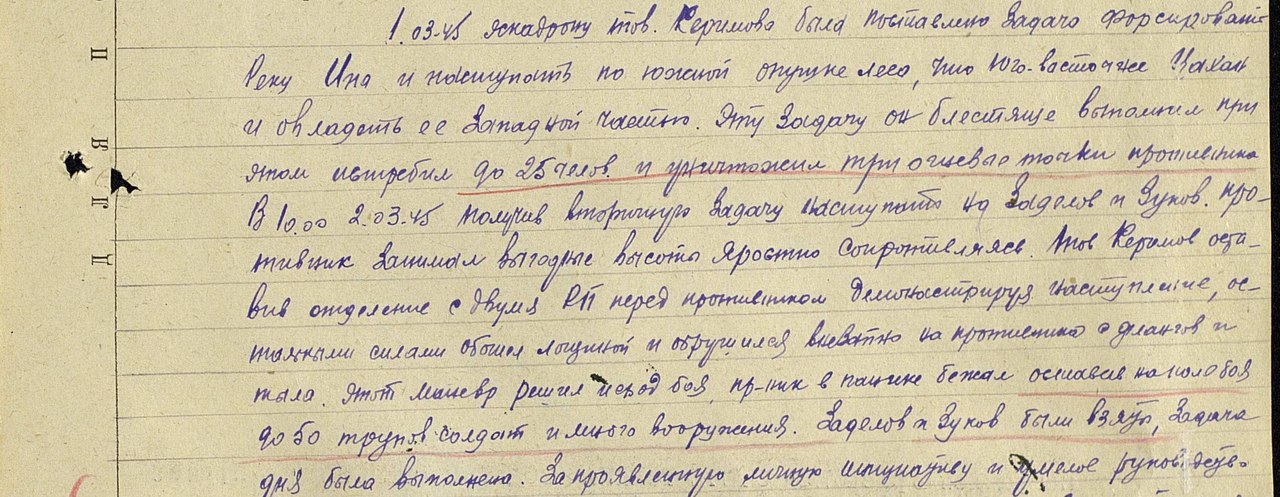 1.03.45 эскадрону тов. Керимова была поставлена задача форсировать
реку Ина и наступать по южной опушке леса, что юго-восточнее Цахан
и овладеть ее западной частью. Эту задачу он блестяще выполнил при
этом истребил до 25 челов. и уничтожил три огневые точки противника
В 10.00 2.03.45 получив вторичную задачу наступать на Заделов и Зуков. про-
тивник занимал выгодные высоты яростно сопротивлялся. Тов Керимов оста-
вив отделение с двумя РП перед противником демонстрируя наступление, ос-
тальными силами обошел лощиной и обрушился внезапно на противника с флангов и
тыла. Этот маневр решил исход боя, пр-ник в панике бежал оставив на поле боя
до 50 трупов солдат и много вооружения. Заделов и Зуков были взяты, задача
дня была выполнена. За проявленную личную инициативу и умелое руководств-
П
Я
Г
Д